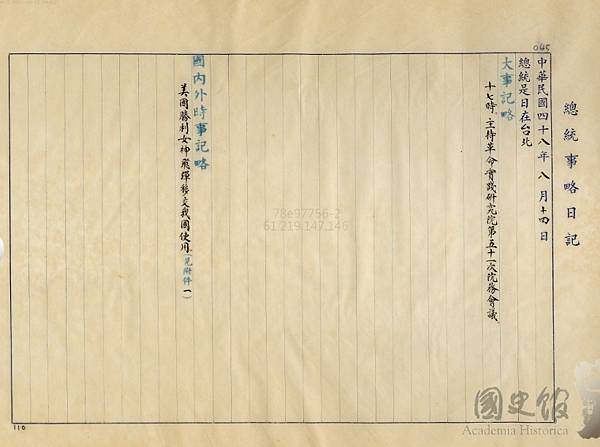 045
總統事略日記
中華民國四十八年八月十四日
總統是日在台北
大事記略
十七時、主持革命實踐研究院第五十一次院務會議。
國內外時事記略
美國勝利女神飛彈移交我國使用。(見附件一)
78e97756-2
61.219.147.146
110
國史館
Academia Historica